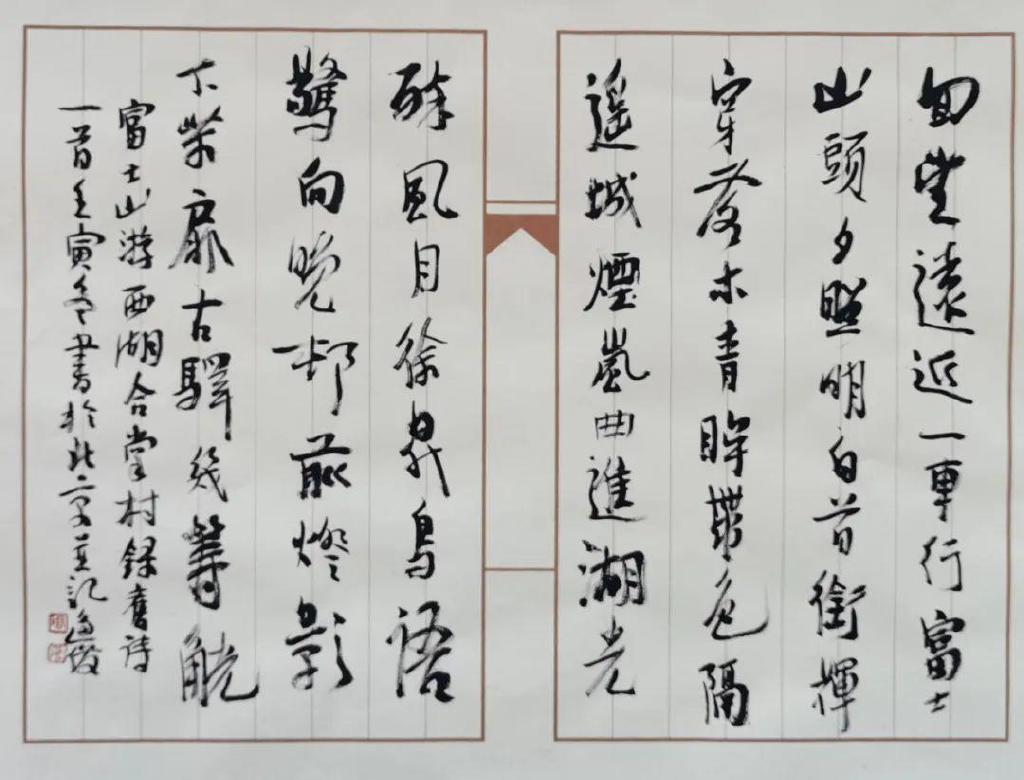 回望遠近一車行富士
山頭夕照明白首銜輝
穿落木青眸帶色隔
遥城煙嵐曲進湖光
酔風月徐歸鳥語
驚向晚邨前燈影
下柴扉古驛幾籌觥
富士山游西湖合掌村録舊詩
一首壬寅冬書於北京